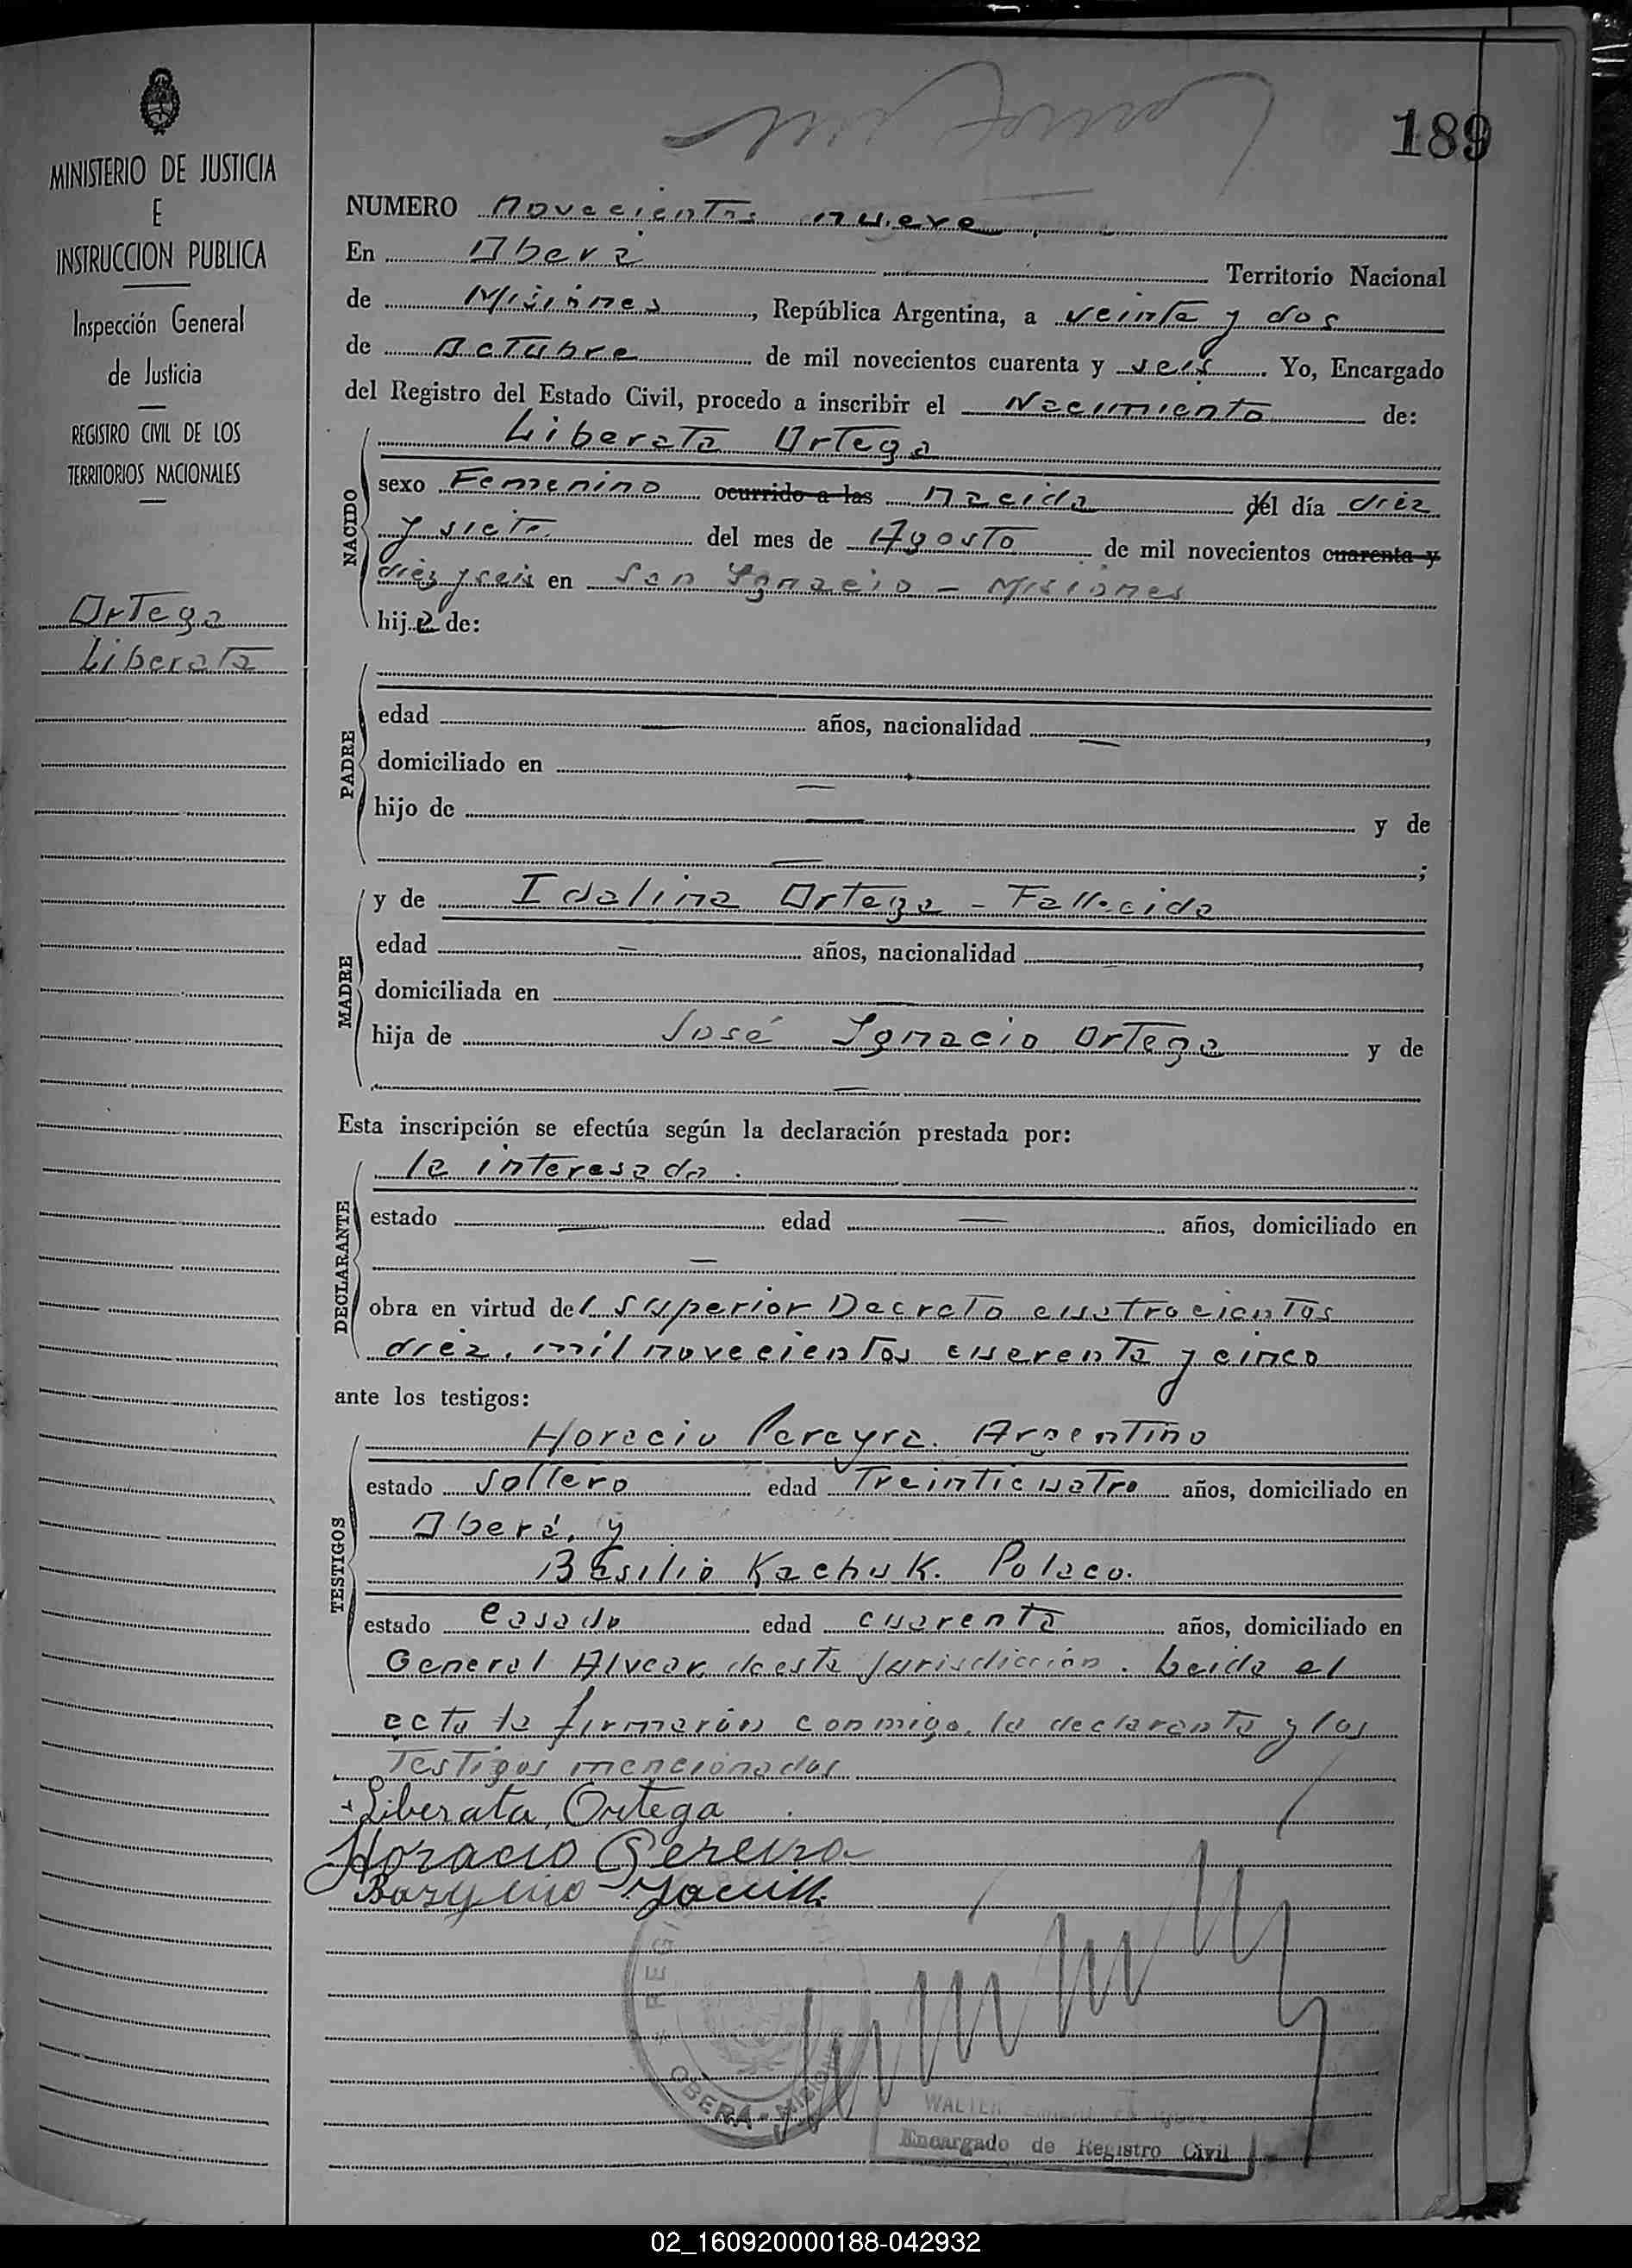 189
MINISTERIO DE JUSTICIA
E
INSTRUCCION PUBLICA
Inspección General
de Justicia
REGISTRO CIVIL DE LOS
TERRITORIOS NACIONALES
Ortega
Liberata
NUMERO novecientos nueve
En Oberá Territorio Nacional
de Misiones, República Argentina, a veinte y dos
de Octubre de mil novecientos cuarenta y seis. Yo, Encargado
del Registro del Estado Civil, procedo a inscribir el Nacimiento de:
NACIDO
Liberata Ortega
sexo Femenino ocurrido a las nacida del día diez
y siete del mes de Agosto de mil novecientos cuarenta y
diez y seis en San Ignacio - Misiones
hija de:
PADRE
edad — años, nacionalidad —,
domiciliado en —
hijo de — y de
— ;
MADRE
y de Idalina Ortega - Fallecida
edad — años, nacionalidad —,
domiciliada en —
hija de José Ignacio Ortega y de
—
Esta inscripción se efectúa según la declaración prestada por:
DECLARANTE
la interesada.
estado — edad — años, domiciliado en
—
obra en virtud del Superior Decreto cuatrocientos
diez, mil novecientos cuarenta y cinco
ante los testigos:
TESTIGOS
Horacio Pereyra. Argentino
estado soltero edad Treinticuatro años, domiciliado en
Oberá, y
Basilio Kachuk. Polaco.
estado casado edad cuarenta años, domiciliado en
General Alvear, de esta jurisdicción. Leida el
acta la firmarón conmigo, la declaranta y los
Testigos mencionados
Liberata, Ortega
Horacio Pereira
REGI
OBERA - MISION
WALTER
Encargado de Registro Civil
02_160920000188-042932